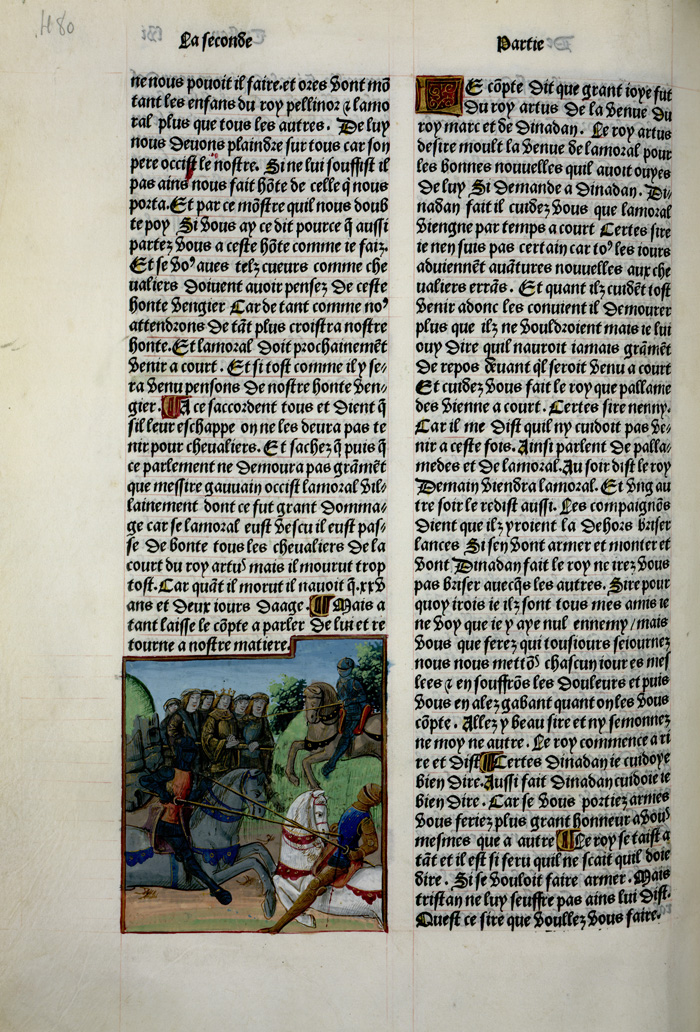 H80
La seconde
Partie
ne nous pouoit il faire. et ores vont mõ
tant les enfans du roy pellinor ⁊ lamo
ral plus que tous les autres. De luy
nous deuons plaindre sur tous car son
pere occist le nostre. Si ne lui souffist il
pas ains nous fait hõte de celle q̃ nous
porta. Et par ce mõstre quil nous doub
te poy Si vous ay ce dit pource q̃ aussi
partez vous a ceste hõte comme ie faiz.
Et se voꝰ aues telz cueurs comme che
ualiers doiuent auoir pensez de ceste
honte vengier Car de tant comme noꝰ
attendrons de tãt plus croistra nostre
honte. Et lamoral doit prochainemẽt
venir a court. Et si tost comme il y se⸗
ra venu pensons de nostre honte ven⸗
gier. A ce saccordent tous et dient q̃
sil leur eschappe on ne les deura pas te
nir pour cheualiers. Et sachez q̃ puis q̃
ce parlement ne demoura pas grãmẽt
que messire gauuain occist lamoral vil⸗
lainement dont ce fut grant domma⸗
ge car se lamoral eust vescu il eust pas⸗
se de bonte tous les cheualiers de la
court du roy artuꝰ mais il mourut trop
tost. Car quãt il morut il nauoit q̃.xxv
ans et deux iours daage. Mais a
tant laisse le cõpte a parler de lui et re
tourne a nostre matiere.
LE cõpte dit que grant ioye fut
du roy artus de la venue du
roy marc et de dinadan. Le roy artus
desire moult la venue de lamoral pour
les bonnes nouuelles quil auoit ouyes
de luy Si demande a dinadan. Di⸗
nadan fait il cuidez vous que lamoral
viengne par temps a court Certes sire
ie nen suis pas certain car toꝰ les iours
aduiennẽt auãtures nouuelles aux che
ualiers errãs. Et quant ilz cuidẽt tost
venir adonc les conuient il demourer
plus que ilz ne vouldroient mais ie lui
ouy dire quil nauroit iamais grãmẽt
de repos deuant q̃l seroit venu a court
Et cuidez vous fait le roy que pallame
des vienne a court. Certes sire nenny.
Car il me dist quil ny cuidoit pas ve⸗
nir a ceste fois. Ainsi parlent de palla⸗
medes et de lamoral. Au soir dist le roy
Demain viendra lamoral. Et vng au
tre soir le redist aussi. Les compaignõs
dient que ilz yroient la dehors briser
lances Si sen vont armer et monter et
vont Dinadan fait le roy ne irez vous
pas briser auecq̃s les autres. Sire pour
quoy irois ie ilz sont tous mes amis ie
ne voy que iy aye nul ennemy/mais
vous que ferez qui tousiours seiournez
nous nous mettõs chascun iour es mes
lees ⁊ en souffrõs les douleurs et puis
vous en alez gabant quant on les vous
cõpte. Allez y beau sire et ny semonnez
ne moy ne autre. Le roy commence a ri
re et dist Certes dinadan ie cuidoye
bien dire. Aussi fait dinadan cuidoie ie
bien dire. Car se vous portiez armes
vous feriez plus grant honneur a vouꝰ
mesmes que a autre Le roy se taist a
tãt et il est si seru quil ne scait quil doie
dire. Si se vouloit faire armer. Mais
tristan ne luy seuffre pas ains lui dist.
Quest ce sire que voullez vous faire.